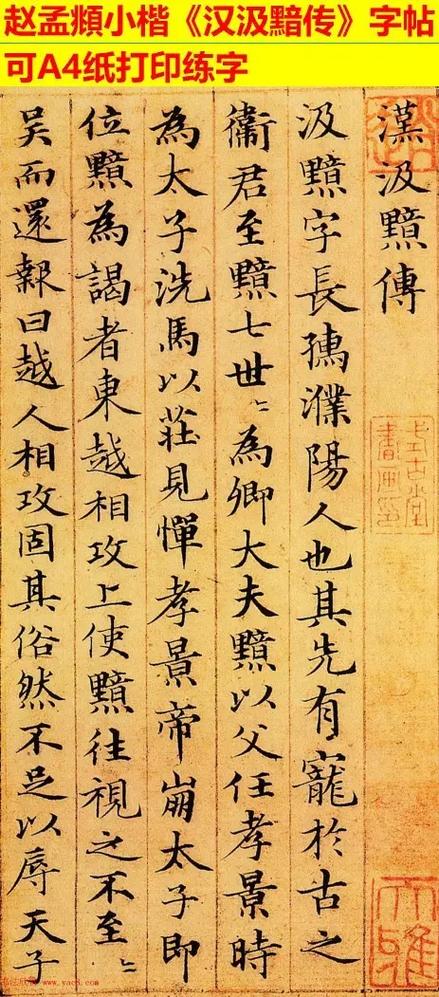 赵孟頫小楷《汉汲黯传》字帖
可A4纸打印练字
漢汲黯傳
汲黯字長孺濮陽人也其先有寵於古之
衞君至黯七世〻為卿大夫黯以父任孝景時
為太子洗馬以莊見憚孝景帝崩太子即
位黯為謁者東越相攻上使黯往視之不至〻
吴而還報曰越人相攻固其俗然不足以辱天子
大雅